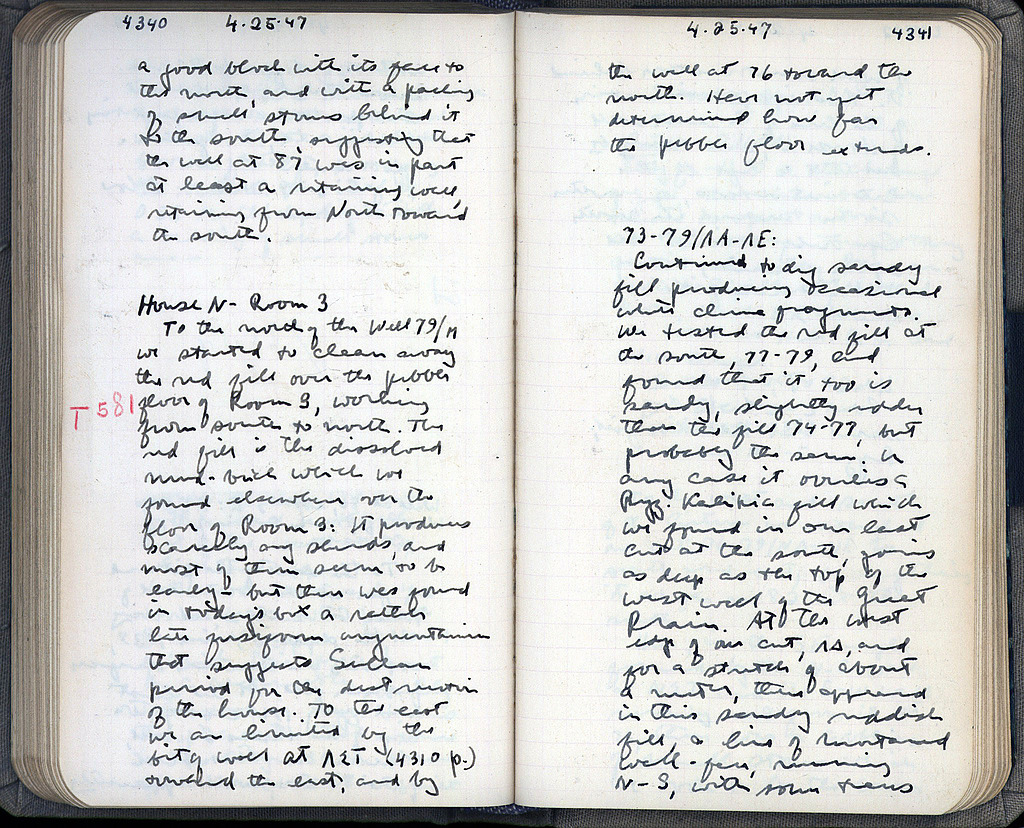 4340 4.25.47
a good block with its face to
the north, and with a packing
of small stones behind it
to the south, suggesting that
the wall at 87 was in part
at least a retaining wall,
retaining from North toward
the south.
House N - Room 3
To the north of the Wall 79/
we started to clean away
the red fill over the pebble
floor of Room 3, working
T 581
from south to north. The
red fill is the dissolved
mud-brick which we
found elsewhere over the
floor of Room 3: It produces
scarcely any sherds, and
most of them seem to be
early - but there was found
in today's box a rather
late fusiform unguentarium
that suggests Sullan
period for the destruction
of the house. To the east
we are limited by the
bit of wall at ΛΣΤ (4310 p.)
toward the east, and by
4.25.47 4341
the wall at 76 toward the
north. Have not yet
determined how far
the pebble floor extends.
73-79/ΛΑ-ΛΕ:
Continued to dig sandy
fill producing occasional
white china fragments.
We tested the red fill at
the south, 77-79, and
found that it too is
sandy, slightly redder
than the fill 74-77, but
probably the same; in
any case it overlies a
Byz. Kalikia fill which
we found in our last
cut at the south, going
as deep as the top of the
west wall of the Great
Drain. At the west
edge of our cut, ΛΔ, and
for a stretch of about
a meter, there appeared
in this sandy reddish
fill, a line of mortared
wall-face, running
N-S, with some traces